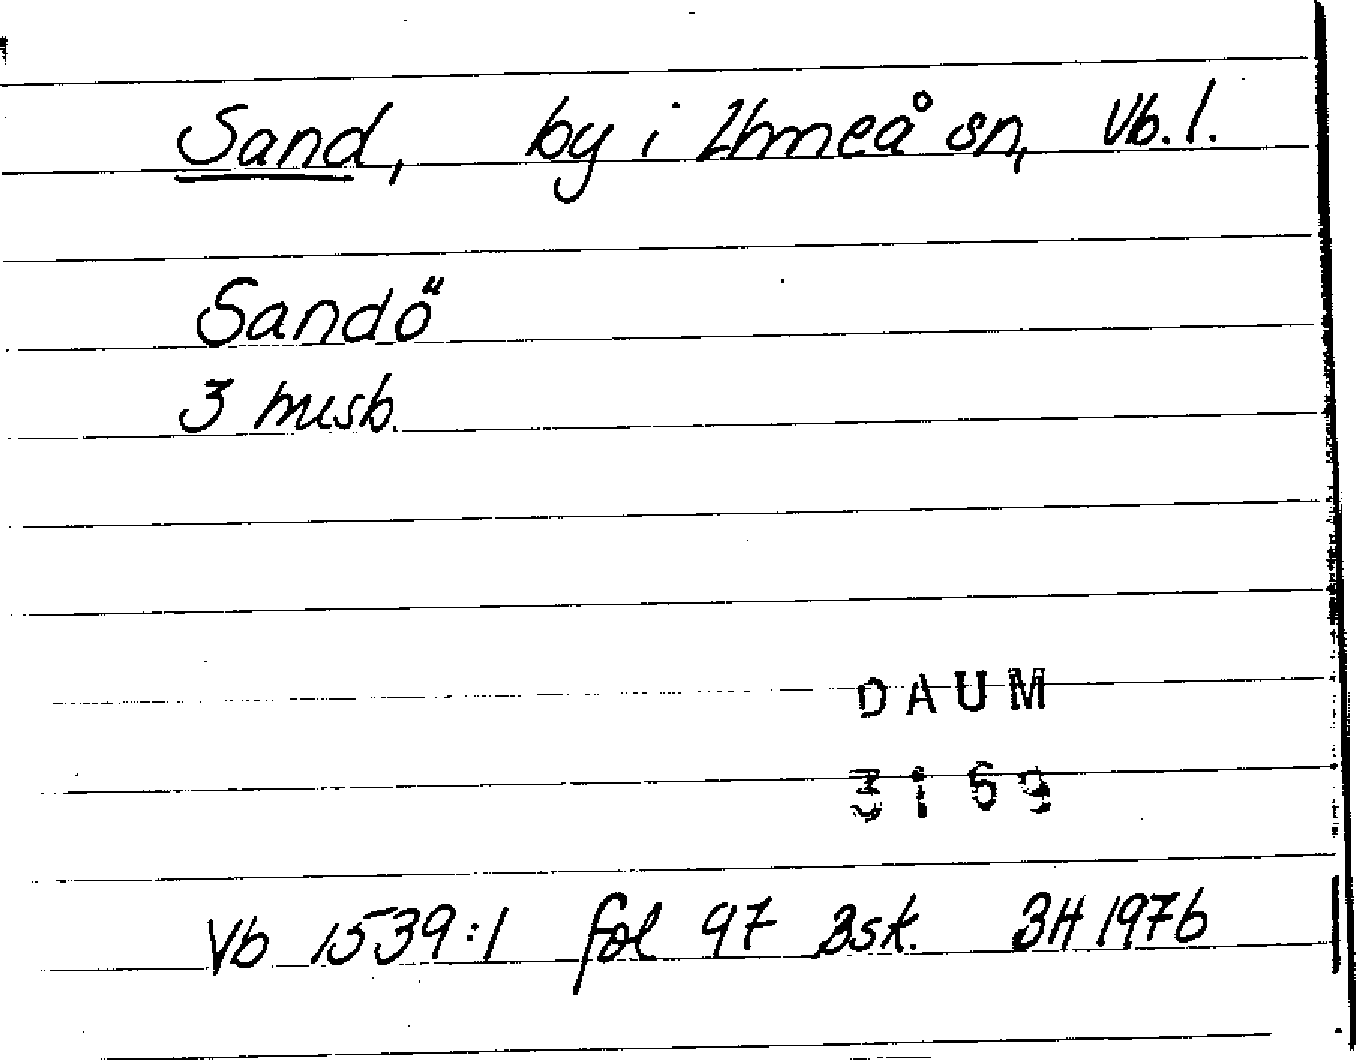 Sand, by i Umeå sn, Vb. l.
Sandö
3 husb.
DAUM
3169
Vb 1539:1 fol 97 Bsk. BH 1976